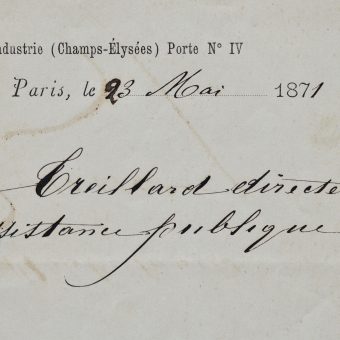 ndustrie (Champs-Élysées) Porte N° IV
Paris, le 23 Mai 1871
Treillard directe
sistance publique